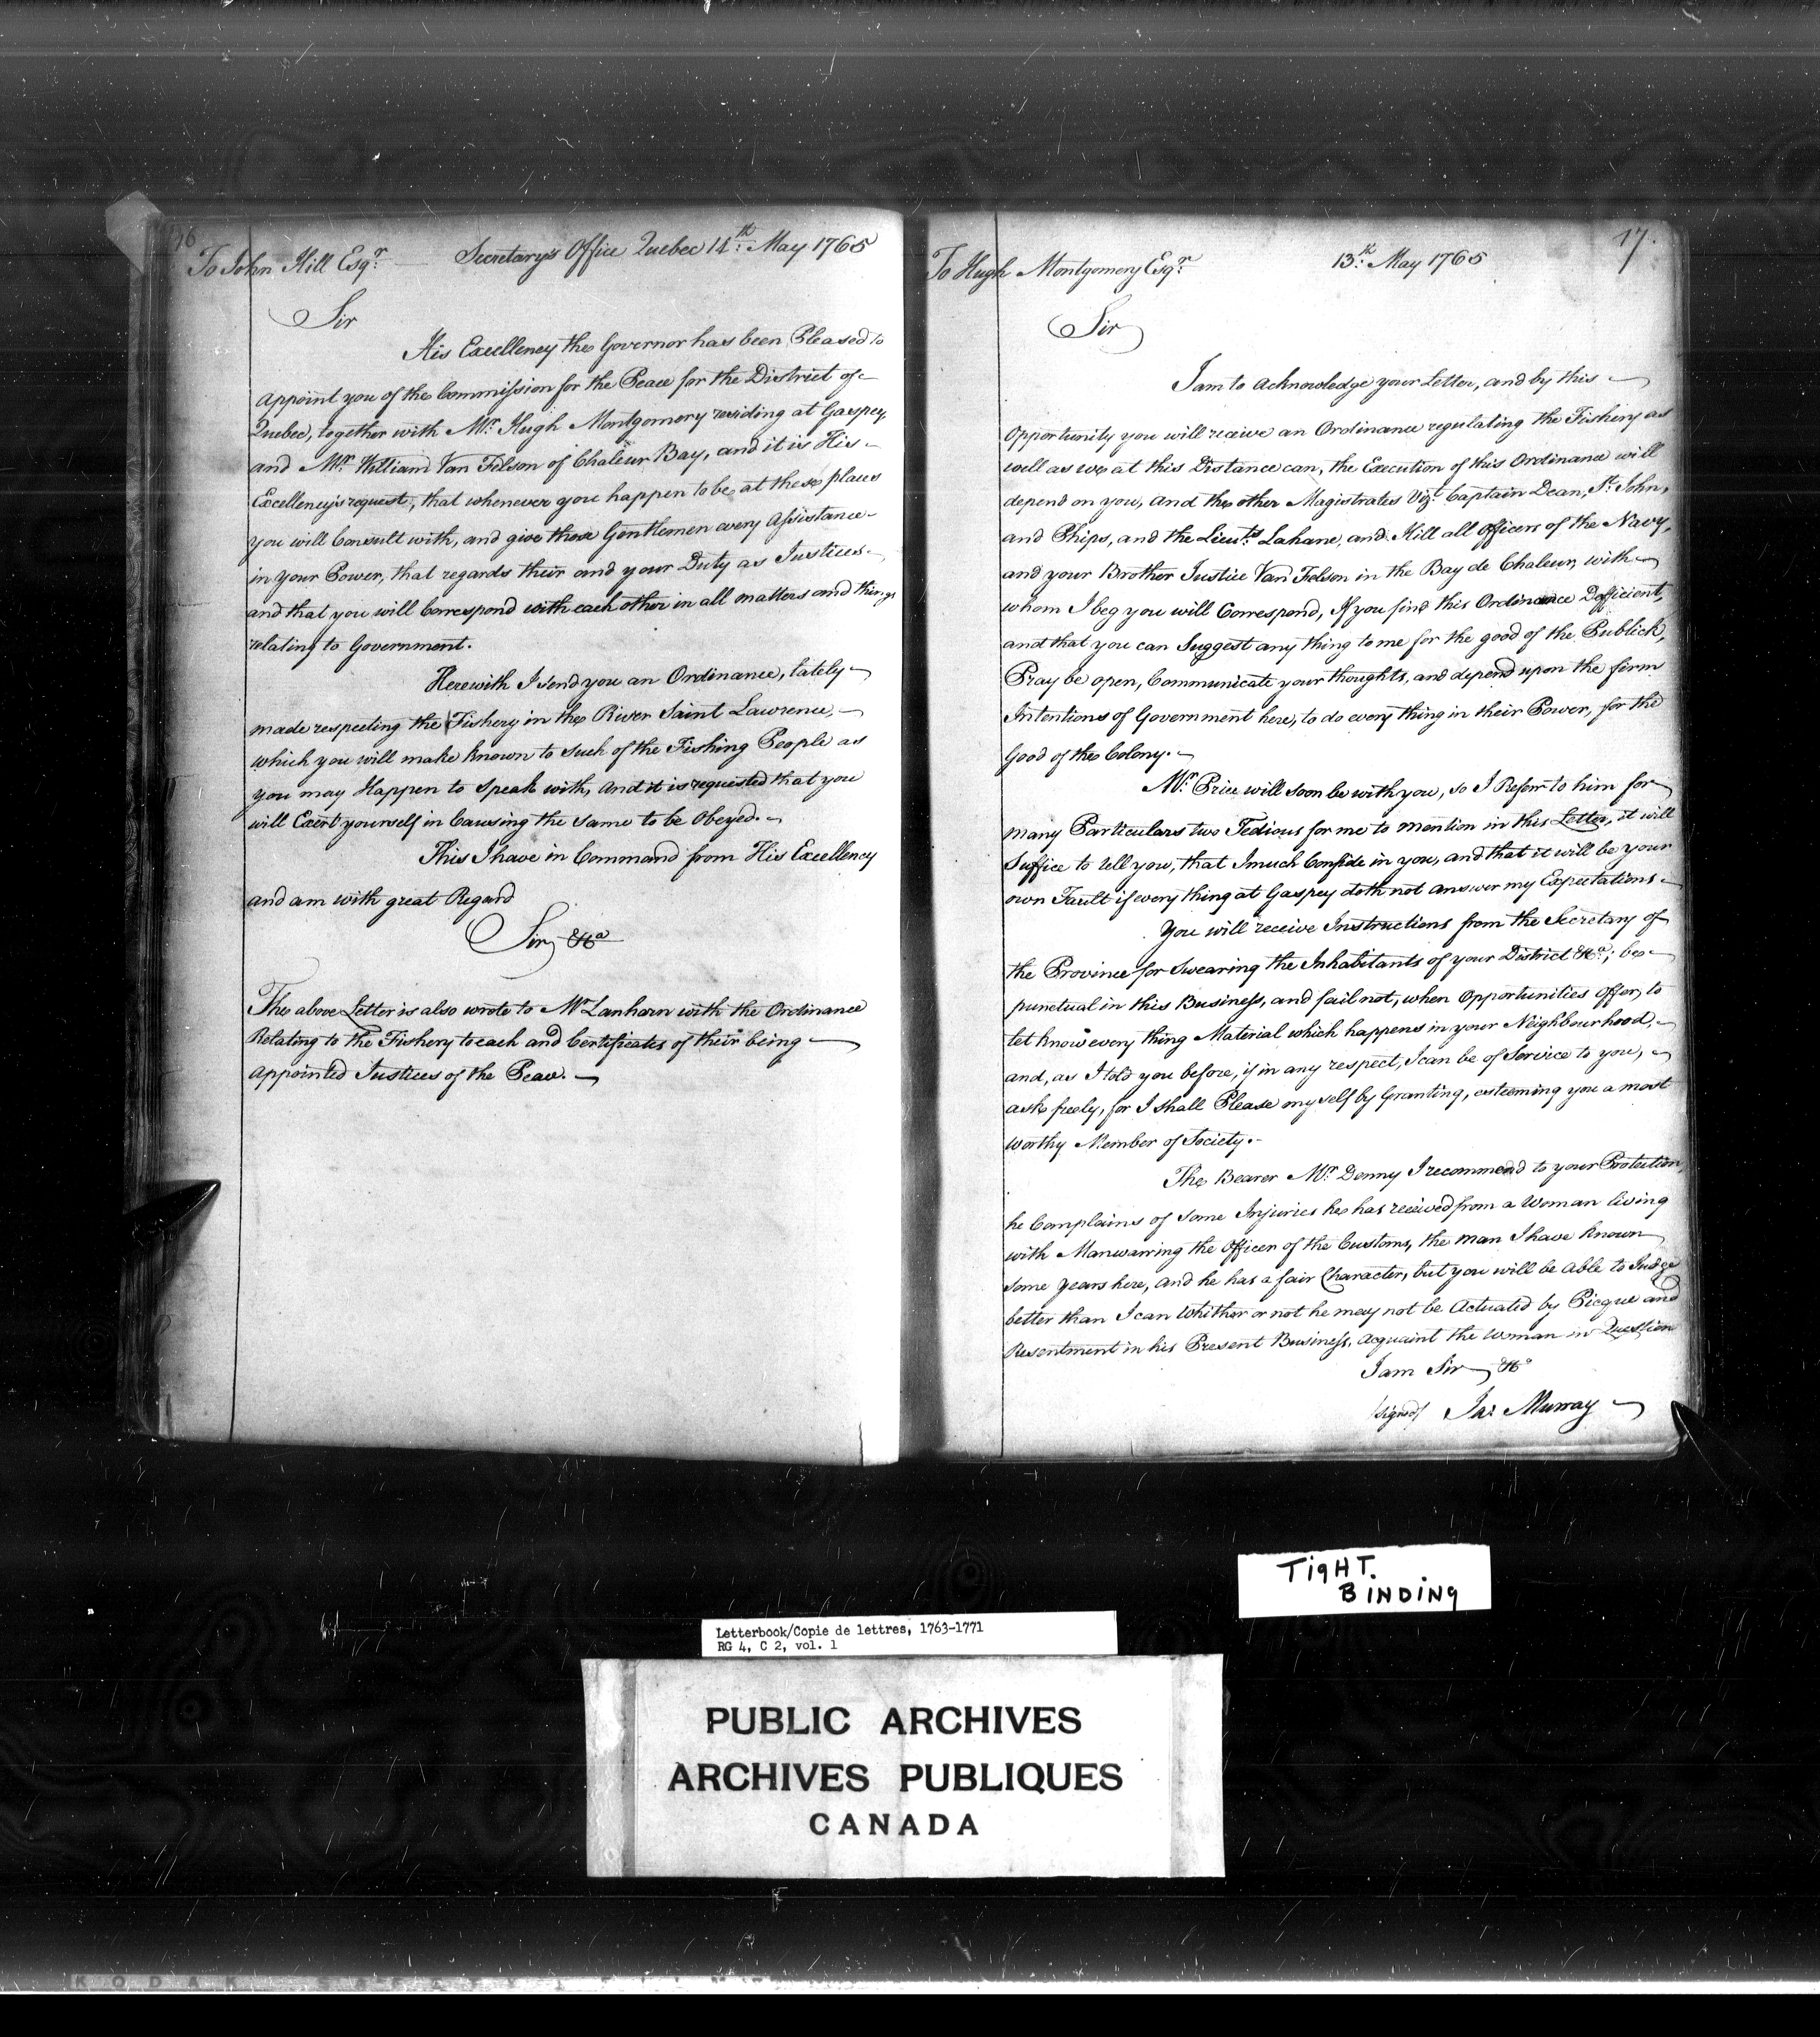 16
To John Hill Esqr. Secretary's Office Quebec 14th. May 1765
Sir
His Excellency the Governor has been Pleased to
appoint you of the Commission for the Peace for the District of
Quebec, together with Mr. Hugh Montgomery residing at Gaspey,
and Mr. William Van Felson of Chaleur Bay, and it is His
Excellency's request, that whenever you happen to be at these places
you will Consult with, and give those Gentlemen every Assistance
in your Power, that regards their and your Duty as Justices
and that you will Correspond with each other in all matters and things
relating to Government.
Herewith I send you an Ordinance, lately
made respecting the Fishery in the River Saint Lawrence,
which you will make known to such of the Fishing People as
you may Happen to speak with, and it is requested that you
will Exert yourself in Causing the same to be Obeyed.
This I have in Command from His Excellency
and am with great Regard
Sir &ca
The above Letter is also wrote to Mr Lanharn with the Ordinance
Relating to the Fishery to each and Certificates of their being
appointed Justices of the Peace.
17.
To Hugh Montgomery Esqr. 13th. May 1765
Sir
I am to acknowledge your Letter, and by this
Opportunity you will receive an Ordinance regulating the Fishery as
well as we at this Distance can, the Execution of this Ordinance will
depend on you, and the other Magistrates Vizt. Captain Dean, St. John,
and Phips, and the Lieuts. Lahane, and Hill all officers of the Navy,
and your Brother Justice Van Felson in the Bay de Chaleur, with
whom I beg you will Correspond, If you find this Ordinance Defficient,
and that you can Suggest any thing to me for the good of the Publick,
Pray be open, Communicate your thoughts, and depend upon the firm
Intentions of Government here, to do every thing in their Power, for the
Good of the Colony.
Mr. Price will soon be with you, so I Referr to him for
many Particulars two Tedious for me to mention in this Letter, it will
Suffice to tell you, that I much Confide in you, and that it will be your
own Fault if every thing at Gaspey doth not answer my Expectations.
You will receive Instructions from the Secretary of
the Province for Swearing the Inhabitants of your District &ca.; be
punctual in this Business, and fail not, when Opportunities Offer, to
let know every thing Material which happens in your Neighbourhood,
and, as I told you before, if in any respect, I can be of Service to you,
ask freely, for I shall Please my self by Granting, esteeming you a most
worthy Member of Society.
The Bearer Mr. Denny I recommend to your Protection,
he Complains of some Injuries he has received from a Woman living
with Manwarring the Officer of the Customs, the man I have known
some years here, and he has a fair Character, but you will be able to Judge
better than I can Whither or not he may not be Actuated by Picque and
Resentment in his Present Business, acquaint the Woman in Question
I am Sir &ca
/signed/ Jas. Murray
TIGHT.
BINDING
Letterbook/Copie de lettres, 1763-1771
RG 4, C 2, vol. 1
PUBLIC ARCHIVES
ARCHIVES PUBLIQUES
CANADA
KODAK SAFETY